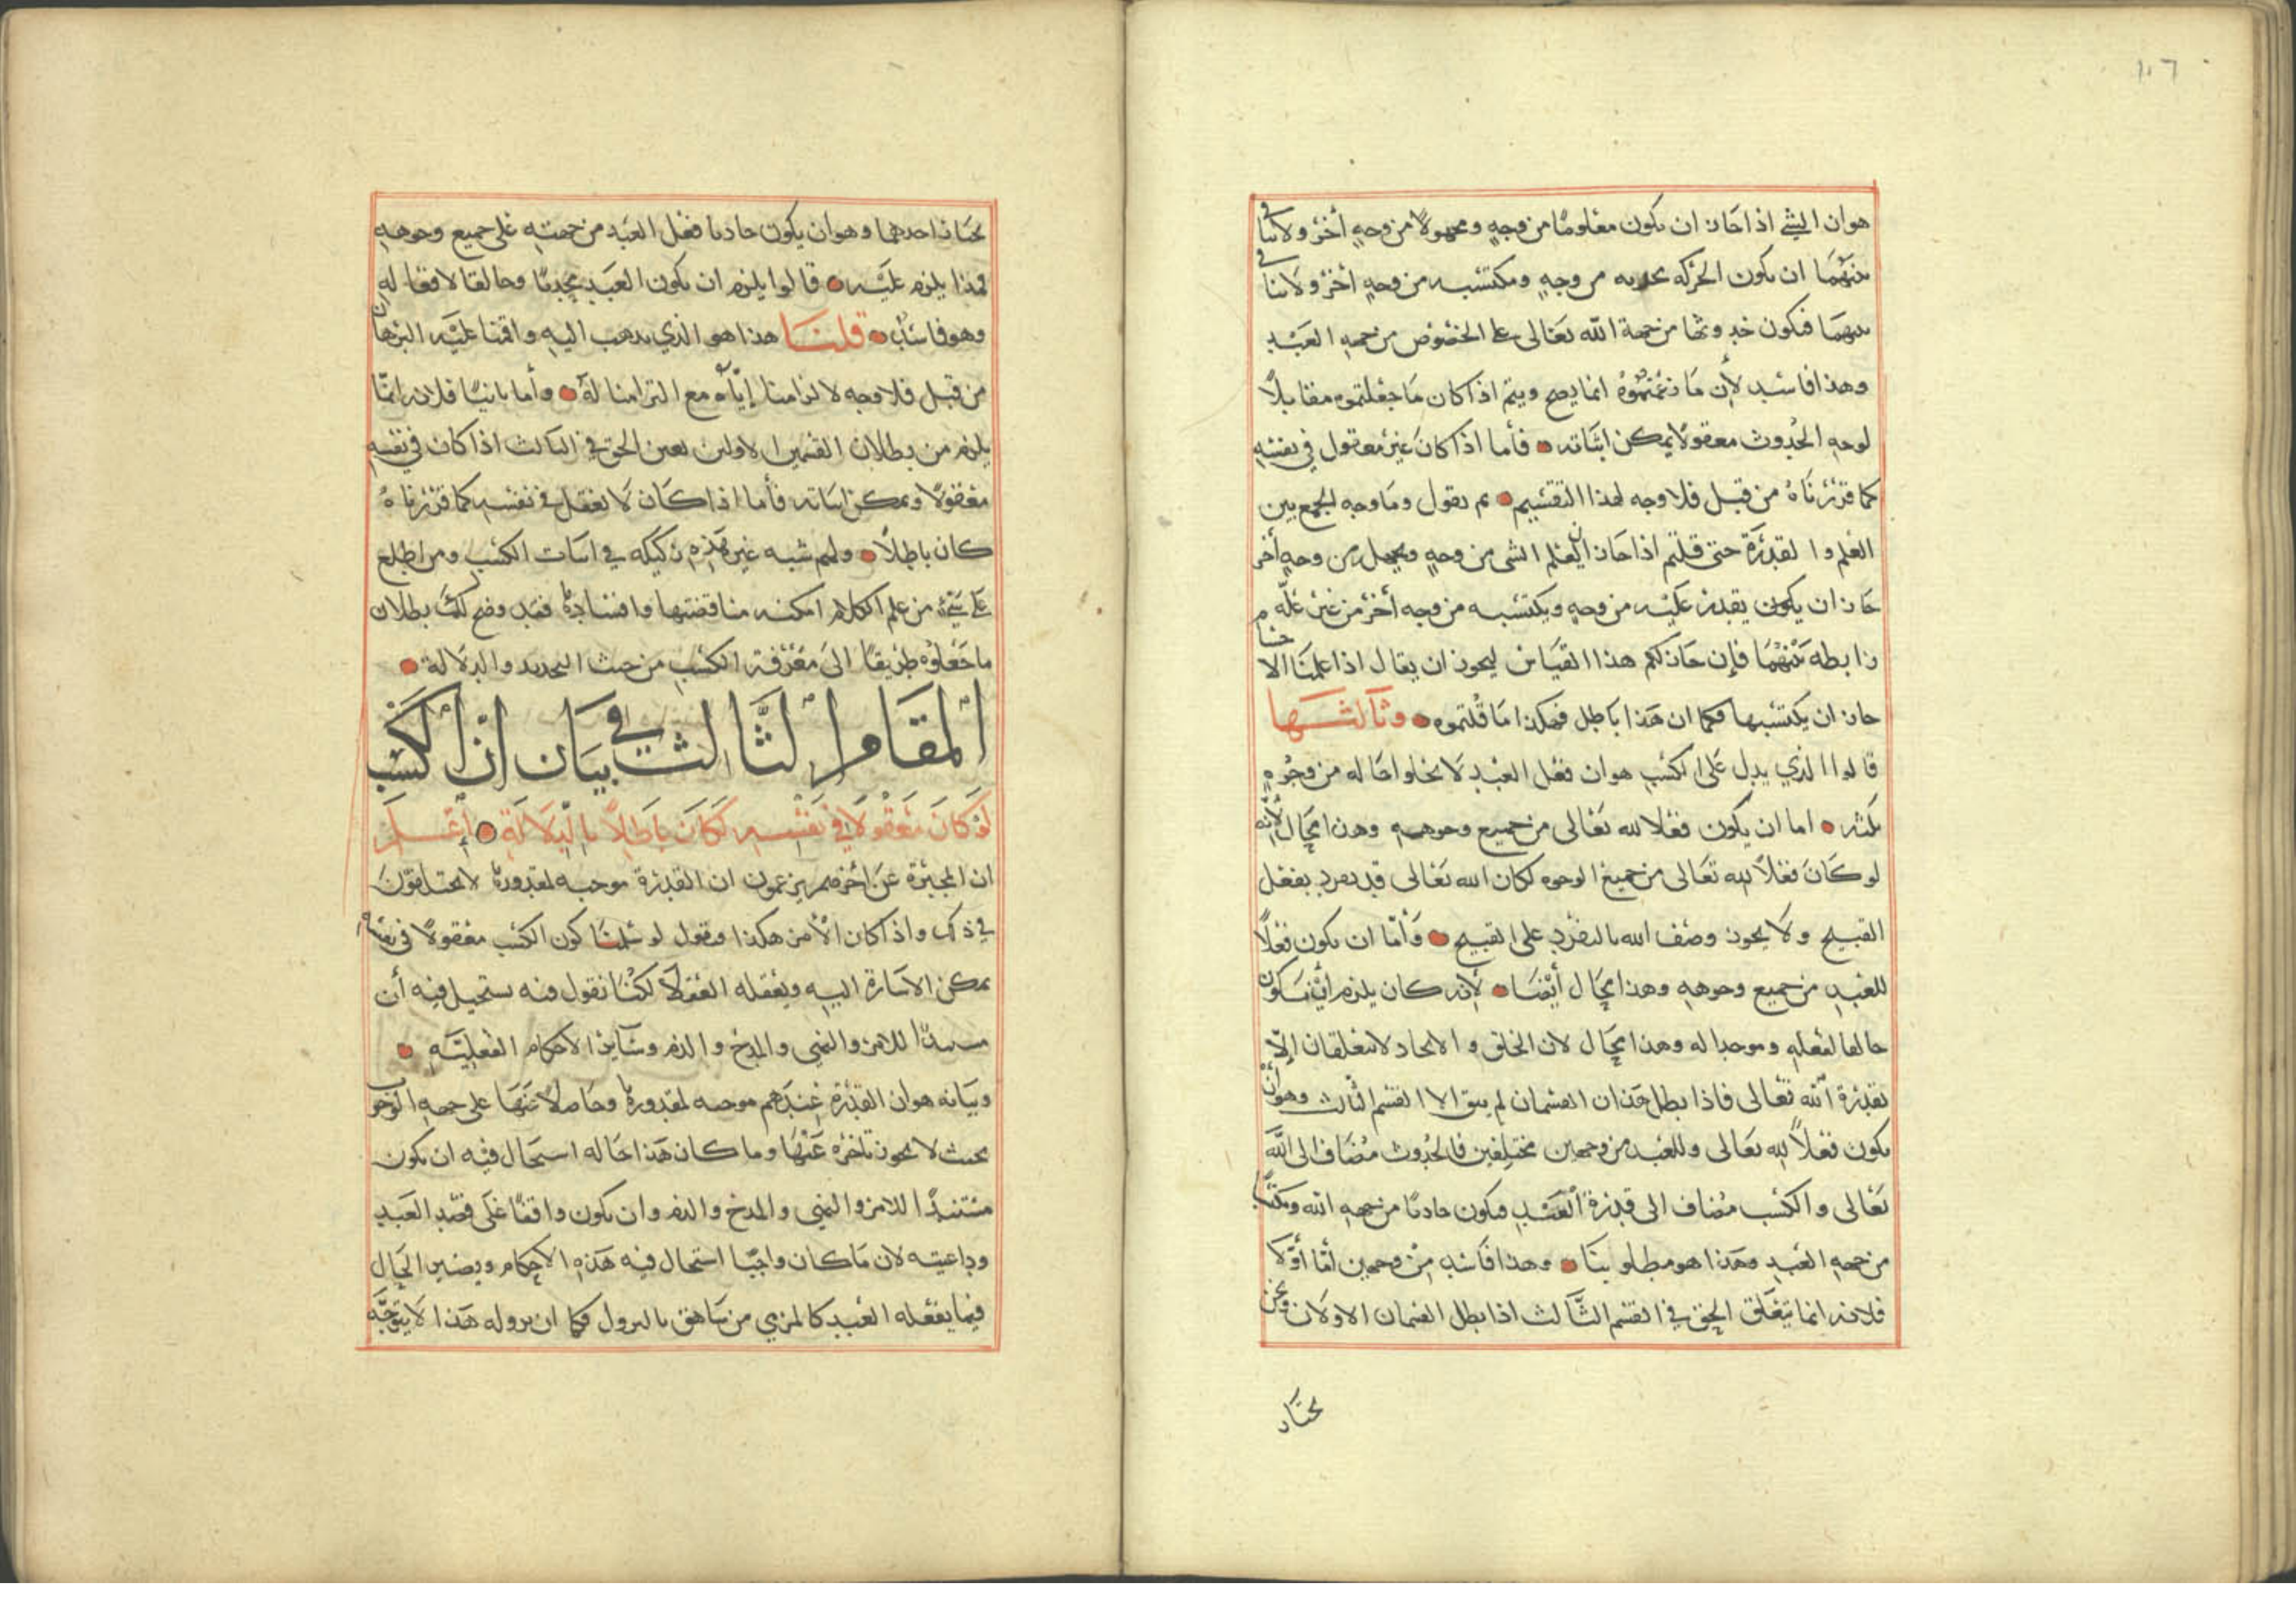 ١٠٦
هو ان الشي اذا جاز ان يكون معلومًا من وجهٍ ومجهولًا من وجهٍ أخر ولا تنافي
بينهما ان يكون الحركه محدثه من وجهٍ ومكتسبه من وجهٍ أخر ولا تنافي
بينهما فيكون حدوثها من جهة الله تعالى على الخصوص من جهه العبد
وهذا فاسد لأن ما زعمتموه انما يصح ويتم اذا كان ما جعلتموه مقابلًا
لوجه الحدوث معقولًا يمكن اثباته فأما اذا كان غير معقول في نفسه
كما قررناه من قبل فلا وجه لهذا التقسيم ثم نقول وما وجه الجمع بين
العلم والقدرة حتى قلتم اذا جاز ان يعلم الشى من وجهٍ ويجهل من وجهٍ أخر
جاز ان يكون يقدر عليه من وجهٍ ويكتسبه من وجه أخر من غير علّه
رابطه بينهما فإن جاز لكم هذا القياس ليجوز ان يقال اذا علمنا الاجسام
جاز ان يكتسبها فكما ان هذا باطل فهكذا ما قلتموه وثالثها
قالوا الذي يدل على الكسب هو ان فعل العبد لا يخلوا حاله من وجوهٍ
ثلثه اما ان يكون فعلا لله تعالى من جميع وجوهه وهذا محال لأنه
لو كان فعلًا لله تعالى من جميع الوجوه لكان الله تعالى قد تفرد بفعل
القبيح ولا يجوز وصف الله بالتفرد على القبيح وأما ان يكون فعلًا
للعبد من جميع وجوهه وهذا محال أيضا لأنه كان يلزم أن يكون
خالقا لفعله وموجدا له وهذا محال لان الخلق والايجاد لا يتعلقان إلا
بقدرة الله تعالى فاذا بطل هذان القسمان لم يبق الا القسم الثالث وهو أن
يكون فعلًا لله تعالى وللعبد من وجهين مختلفين فالحدوث مُضاف الى الله
تعالى والكسب مُضاف الى قدرة العبد فيكون حادثا من جهه الله ومكتسبًا
من جهه العبد وهذا هو مطلوبنا وهذا فاسد من وجهين أما أولا
فلانه انما يتعلق الحق في القسم الثالث اذا بطل القسمان الاولان ونحن
نختار
نختار احدهما وهو ان يكون حادثا فعل العبد من جهته على جميع وجوهه
فماذا يلزم عليه قالوا يلزم ان يكون العبد محدثًا وخالقا لافعاله
وهو فاسد قلنا هذا هو الذي نذهب اليه واقمنا عليه البرهان
من قبل فلا وجه لالزامنا إياه مع التزامنا له وأما ثانيًا فلانه انما
يلزم من بطلان القسمين الاولين تعين الحق في الثالث اذا كان في نفسه
معقولًا ويمكن اثباته فأما اذا كان لا يعقل في نفسه كما قررناه
كان باطلًا ولهم شبه غير هذه ركيكه في اثبات الكسب ومن اطلع
على شيء من علم الكلام امكنه مناقضتها وافسادها فقد وضح لك بطلان
ما جعلوه طريقًا الى معرفة الكسب من حيث التحديد والدلالة
المقام الثالث في بيان ان الكسب
لو كان معقولا في نفسه لكان باطلًا بالدلالة إعلم
ان المجبرة عن أخرهم يزعمون ان القدرة موجبه لمقدورها لا يختلفون
في ذلك واذا كان الأمر هكذا فنقول لو سلمنا كون الكسب معقولًا في نفسه
يمكن الاشارة اليه ويعقله العقلا لكنا نقول فيه يستحيل فيه أن
مستندًا للامر والنهي والمدح والذم وسائر الاحكام الفعليّه
وبيانه هو ان القدرة عندهم موجبه لمقدورها وحاصلًا عنها على جهه الوجوب
بحيث لا يجوز تأخره عنها وما كان هذا حاله استحال فيه ان يكون
مستندًا للامر والنهي والمدح والذم وان يكون واقفًا على قصد العبد
وداعيته لان ما كان واجبًا استحال فيه هذه الاحكام ويصير الحال
فيما يفعله العبد كالمرمي من شاهق بالنزول فكما ان نزوله هذا لا يتوجَّه